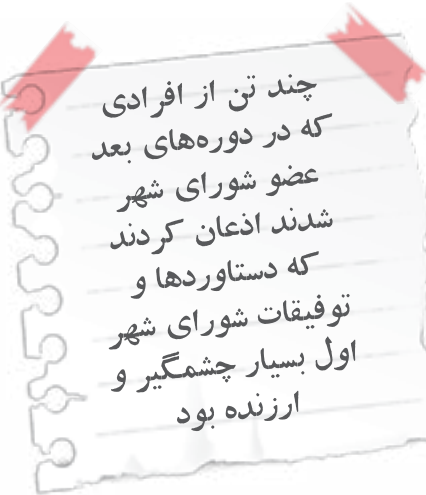 چند تن از افرادی
که در دوره‌های بعد
عضو شورای شهر
شدند اذعان کردند
که دستاوردها و
توفیقات شورای شهر
اول بسیار چشمگیر و
ارزنده بود